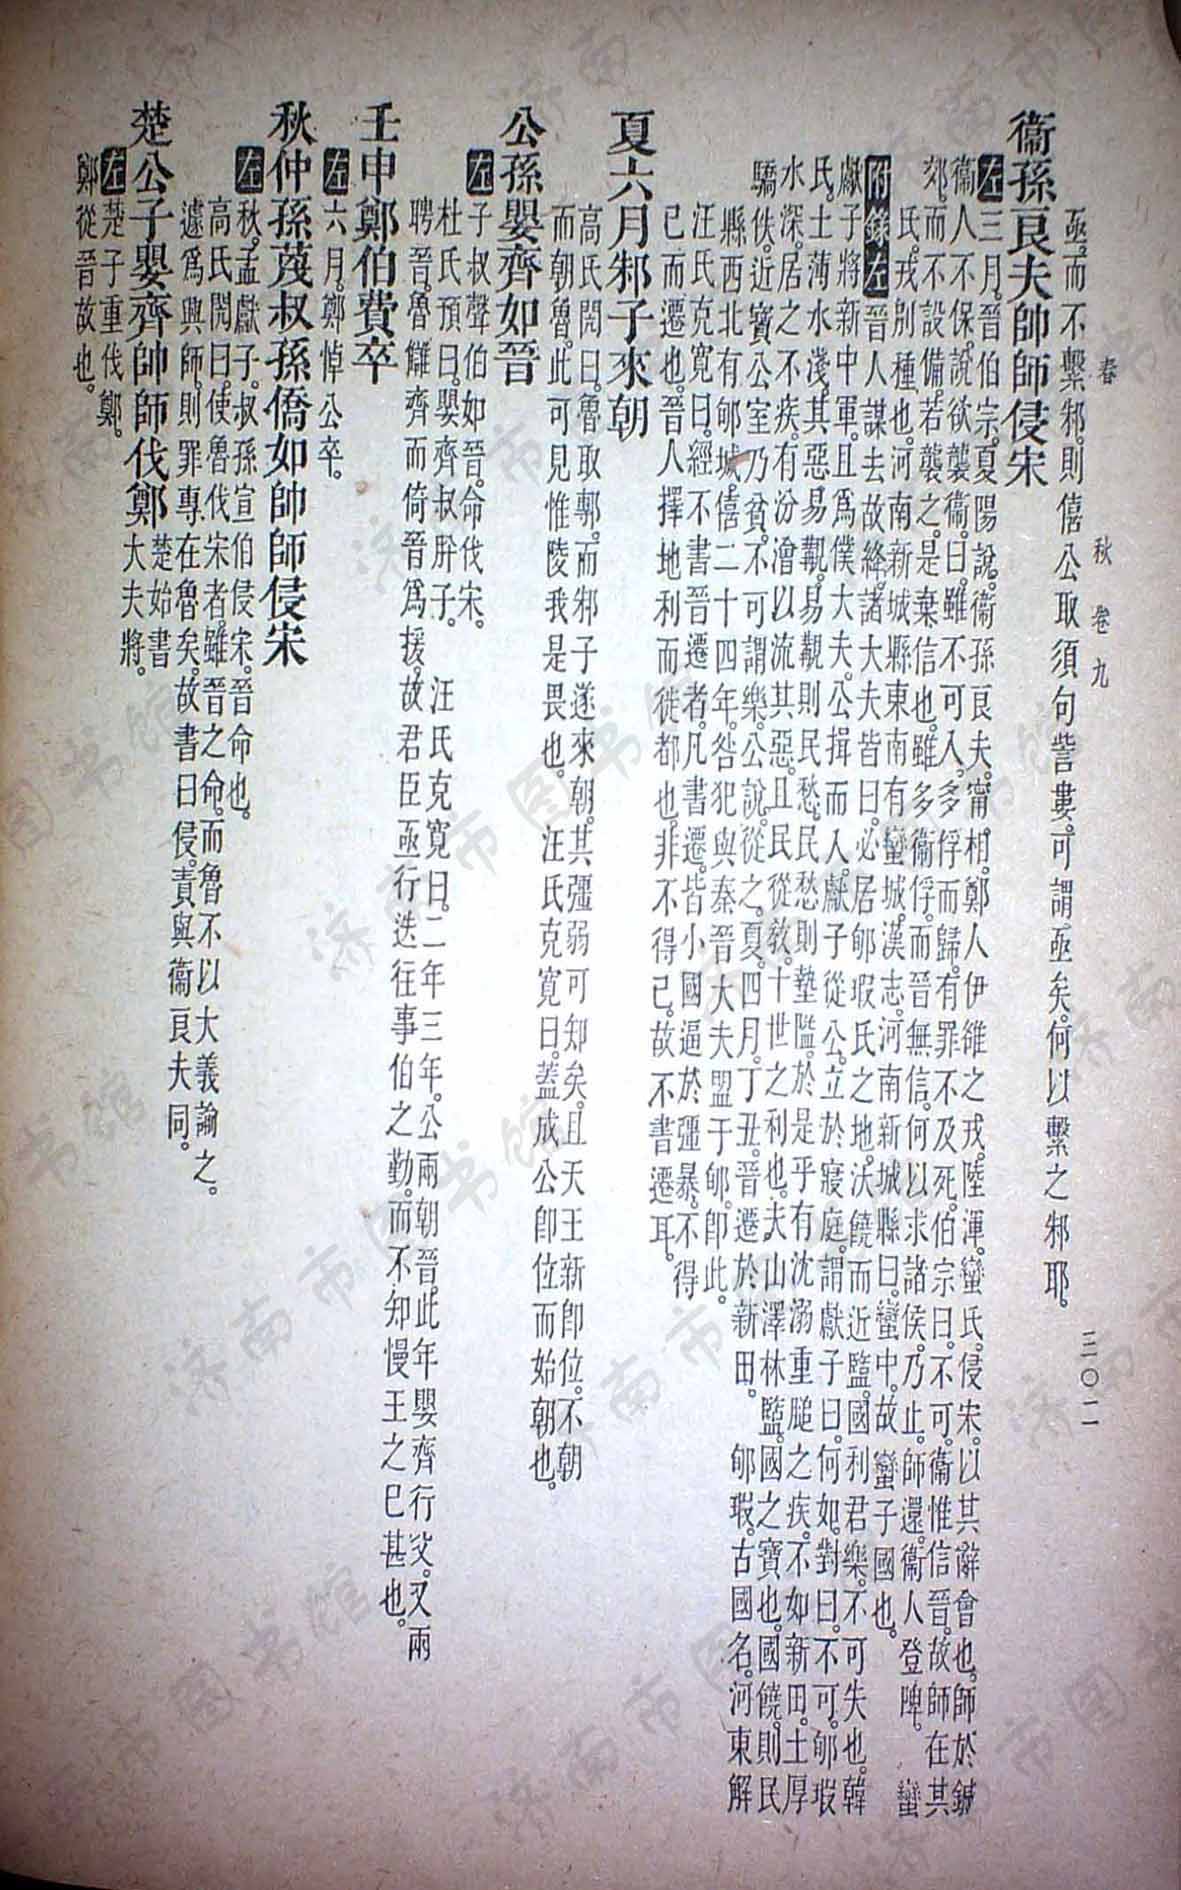 春秋 卷九 三〇二
亟。而不繫邾。則僖公取須句訾婁。可謂亟矣。何以繫之邾耶。
衞孫良夫帥師侵宋
左三月。晉伯宗。夏陽說。衞孫良夫。甯相。鄭人伊雒之戎。陸渾。蠻氏。侵宋。以其辭會也。師於鍼。
衞人不保。說欲襲衞。曰。雖不可入。多俘而歸。有罪不及死。伯宗曰。不可。衞惟信晉。故師在其
郊。而不設備。若襲之。是棄信也。雖多衞俘。而晉無信。何以求諸侯。乃止。師還。衞人登陴。 蠻
氏。戎別種也。河南新城縣東南有蠻城。漢志。河南新城縣曰。蠻中。故蠻子國也。
附錄左晉人謀去故絳。諸大夫皆曰。必居郇瑕氏之地。沃饒而近盬。國利君樂。不可失也。韓
獻子將新中軍。且爲僕大夫。公揖而入。獻子從公。立於寢庭。謂獻子曰。何如。對曰。不可。郇瑕
氏。土薄水淺。其惡易覯。易覯則民愁。民愁則墊隘。於是乎有沈溺重膇之疾。不如新田。土厚
水深。居之不疾。有汾澮以流其惡。且民從敎。十世之利也。夫山澤林盬。國之寶也。國饒。則民
驕佚。近寶公室乃貧。不可謂樂。公說。從之。夏。四月。丁丑。晉遷於新田。 郇瑕。古國名。河東解
縣西北有郇城。僖二十四年。咎犯與秦晉大夫盟于郇。卽此。
汪氏克寬曰。經不書晉遷者。凡書遷。皆小國逼於彊暴。不得
已而遷也。晉人擇地利而徙都也。非不得已。故不書遷耳。
夏六月邾子來朝
高氏閌曰。魯取鄟。而邾子遂來朝。其彊弱可知矣。且天王新卽位。不朝
而朝魯。此可見惟陵我是畏也。 汪氏克寬曰。蓋成公卽位而始朝也。
公孫嬰齊如晉
左子叔聲伯如晉。命伐宋。
杜氏預曰。嬰齊叔肸子。 汪氏克寬曰。二年三年。公兩朝晉。此年嬰齊行父。又兩
聘晉。魯讎齊而倚晉爲援。故君臣亟行迭往事伯之勤。而不知慢王之已甚也。
壬申鄭伯費卒
左六月。鄭悼公卒。
秋仲孫蔑叔孫僑如帥師侵宋
左秋。孟獻子。叔孫宣伯侵宋。晉命也。
高氏閌曰。使魯伐宋者。雖晉之命。而魯不以大義諭之。
遽爲興師。則罪專在魯矣。故書曰侵。責與衞良夫同。
楚公子嬰齊帥師伐鄭楚始書大夫將。
左楚子重伐鄭。
鄭從晉故也。